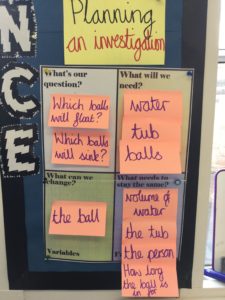 Planning
an investigation
NCE
What's our
question?
Which balls
will float?
Which balls
will sink?
What will we
need?
water
tub
balls
What can we
change?
the ball
Variables
What needs to
stay the same?
Volume of
water
the tub
the person
How long
the ball is
in for